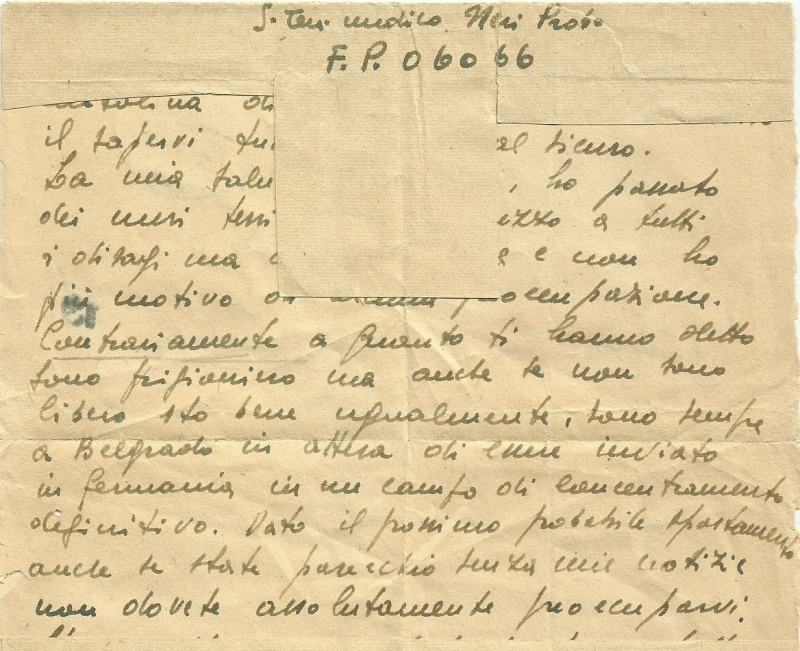 S. Ten. medico Neri
F. P. 06066
di
il sapervi al sicuro.
La mia , ho passato
dei mesi a tutti
i disagi ma e non ho
più motivo di preoccupazione.
Contrariamente a quanto ti hanno detto
sono prigioniero ma anche se non sono
libero sto bene ugualmente, sono sempre
a Belgrado in attesa di essere inviato
in Germania in un campo di concentramento
definitivo. Dato il prossimo probabile spostamento
anche se state parecchio senza mie notizie
non dovete assolutamente preoccuparvi.